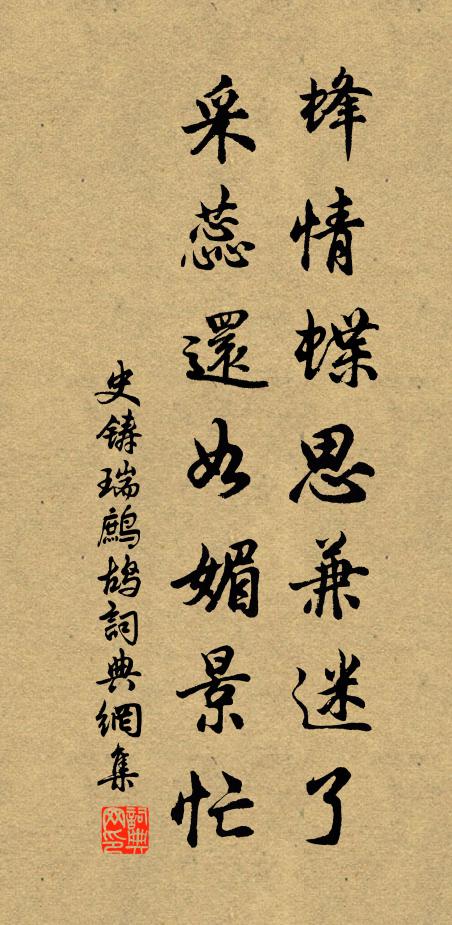 蜂情蝶思兼迷了
采蕊還如媚景忙
史鑄瑞鷓鴣詞典網集
詞典网印